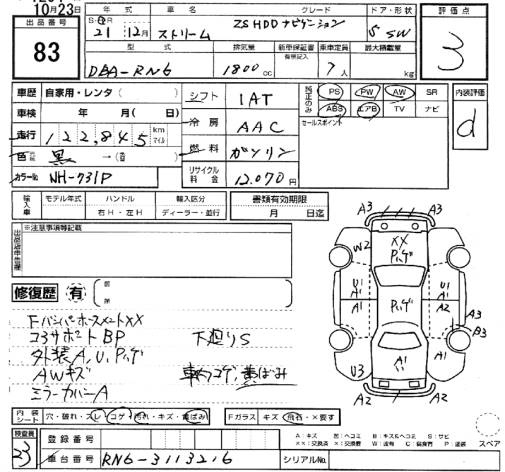 10月23日
年式 車名 グレード ドア・形状 評価点
出品番号
83
S・H・R
21 12月 ストリーム ZS HDDナビゲーション 5 SW
3
型式 排気量 新車保証書 有無記入 乗車定員 最大積載量
DBA-RN6 1800 cc 7人 kg
車歴 自家用・レンタ( )
シフト 1AT
PS PW AW SR
内装評価
車検 年 月( 日)
冷房 AAC
ABS エアB TV ナビ
d
走行 122,845 km マイル
セールスポイント
色 黒 →(色 )
燃料 ガソリン
カラーNo NH-731P
リサイクル料金 12,070円
輸入車 モデル年式 ハンドル 輸入区分 書類有効期限
右H・左H ディーラー・並行 月 日迄
※注意事項等記載
A3 A3
XX
W2 Pカゲ
修復歴 有
U1 A1 Pカゲ U1 A1
A1 A2
A3
FバンパーホースメントXX
コアサポートBP 下廻りS
外装A,U,Pカゲ
AWキズ コゲ,黄ばみ
ミラーカバーA
A1 A1
A3
U3
A2 A2
内装シート 穴・破れ・スレ・コゲ・汚れ・キズ・黄ばみ Fガラス キズ・飛石・×要す
検査員 23
登録番号
車台番号 RN6-3113216 シリアルNo.
A:キズ U:ヘコミ B:キズ&ヘコミ S:サビ
××:交換済 ×:交換要 W:波有 C:腐食有 P:塗装 スペア